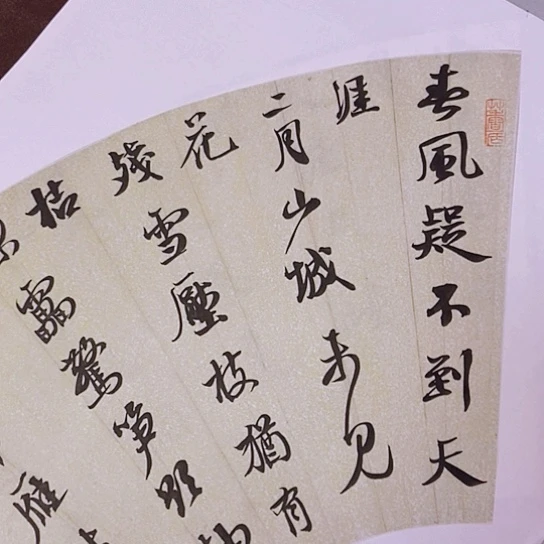 春風疑不到天
涯
二月山城未見
花
殘雪壓枝猶有
桔
雷驚筍欲
雁